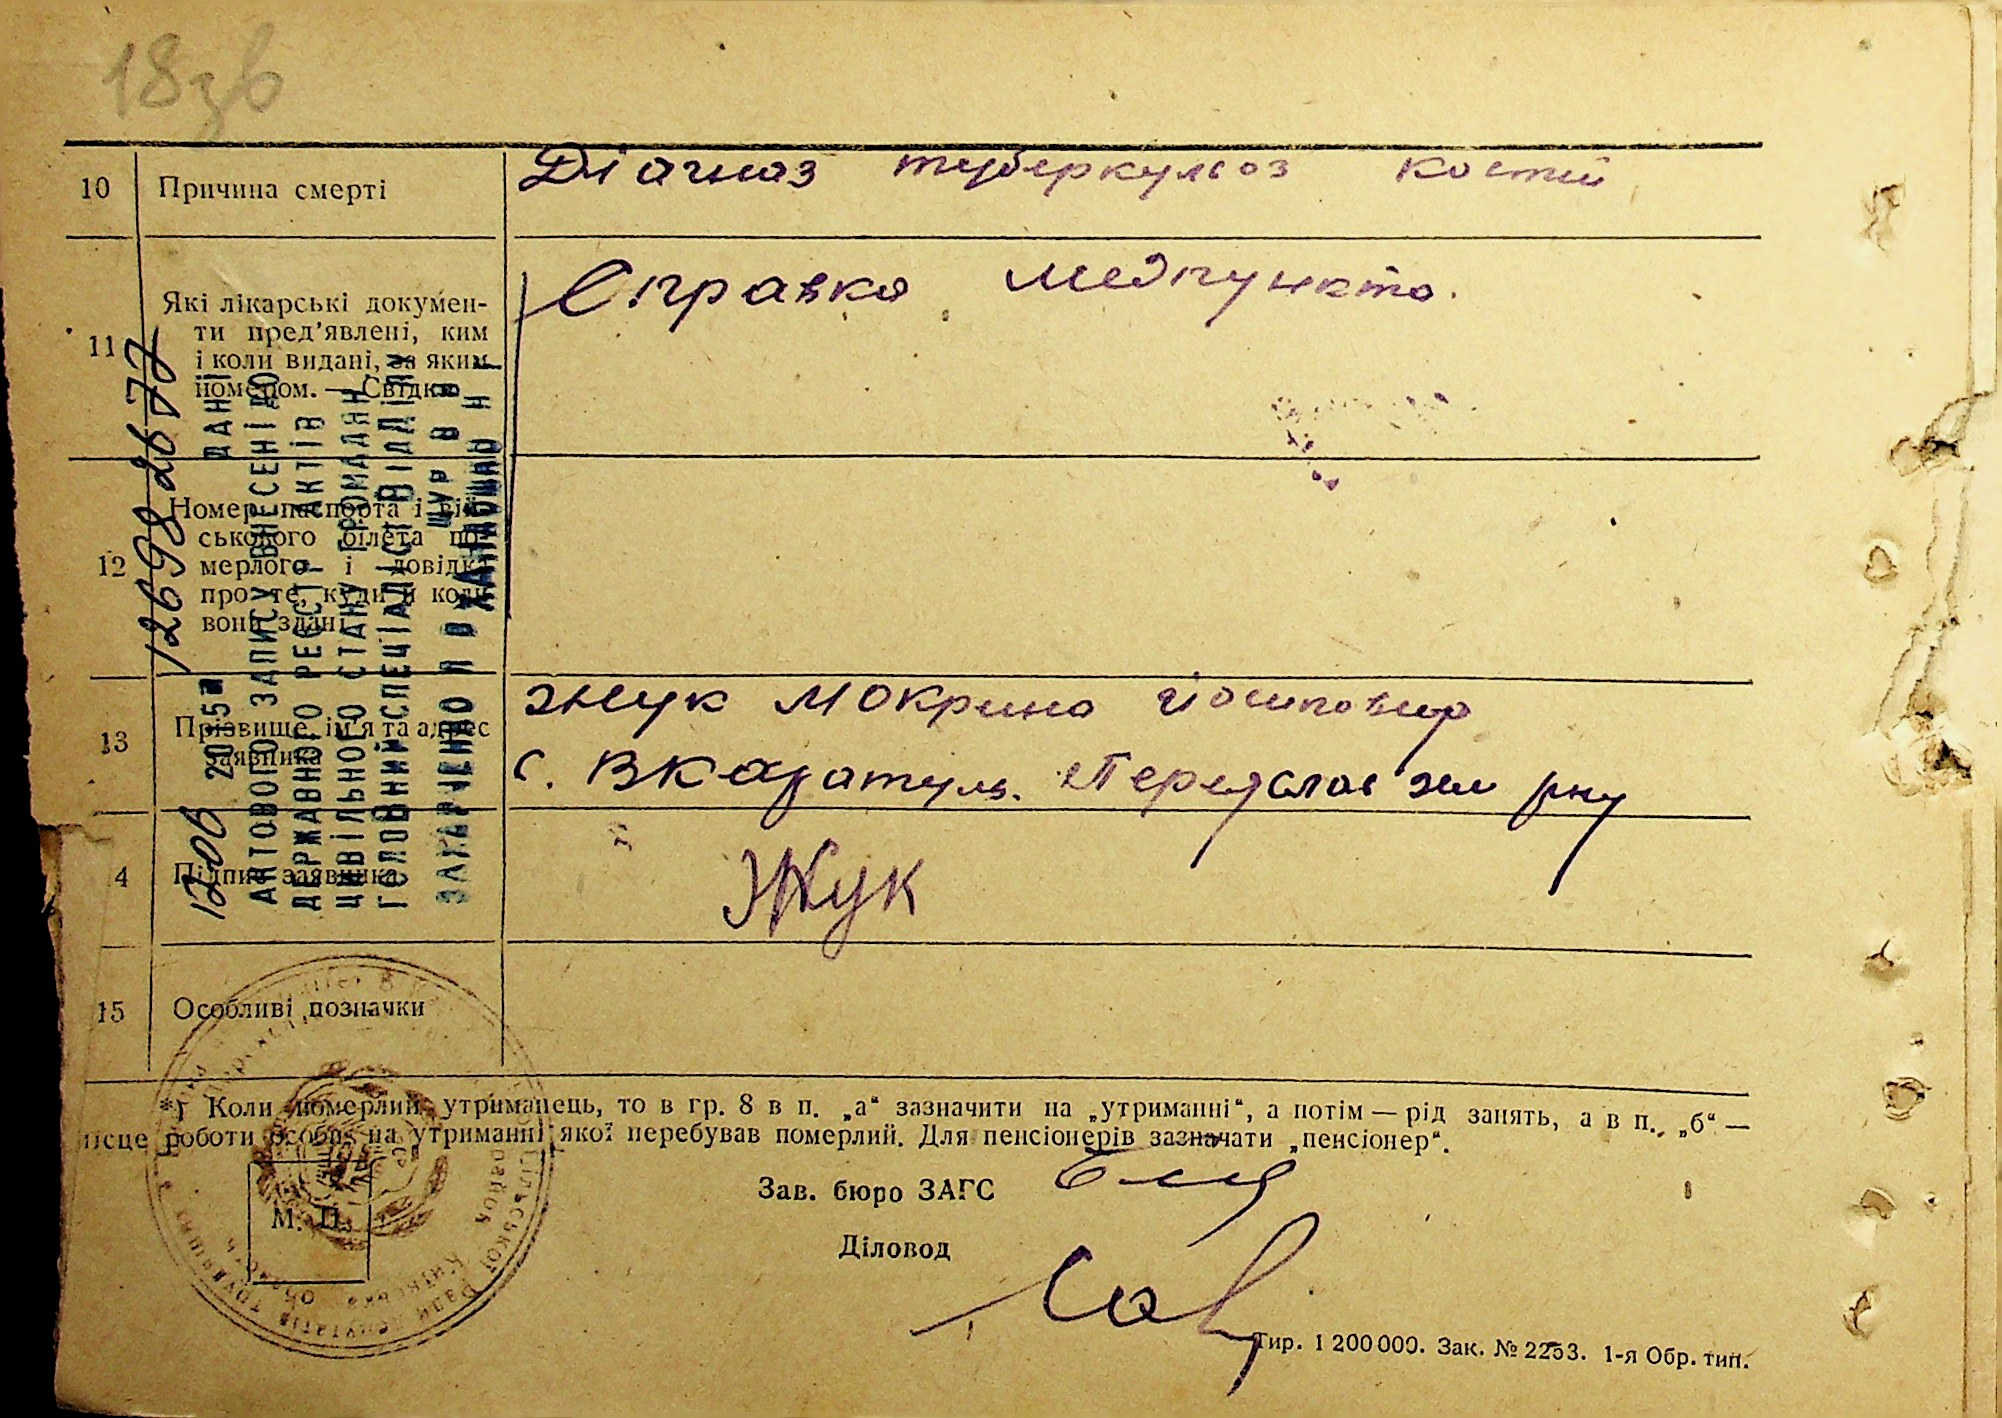 18зв
10 Причина смерті Діагноз туберкульоз костій
11 Які лікарські докумен-
ти пред’явлені, ким
і коли видані, за яким
номером. — Свідки
Справка медпункта.
12 Номер паспорта і вій-
ськового білета по-
мерлого і довідка
про те, куди й коли
вони здані
13 Прізвище, ім’я та адрес
заявника
Жук Мокрина Йосиповна
с. В Каратуль. Переяслав Хм рну
4 Підпис заявника Жук
15 Особливі позначки
*) Коли померлий утриманець, то в гр. 8 в п. „а“ зазначити на „утриманні“, а потім — рід занять, а в п. „б“ —
місце роботи особи, на утриманні якої перебував померлий. Для пенсіонерів зазначати „пенсіонер“.
Зав. бюро ЗАГС
Діловод
М. П.
Тир. 1 200 000. Зак. № 2253. 1-я Обр. тип.
12698 2677
ДАНІ
АКТОВОГО ЗАПИСУ ВНЕСЕНІ ДО
ДЕРЖАВНОГО РЕЄСТРУ АКТІВ
ЦИВІЛЬНОГО СТАНУ ГРОМАДЯН
ГОЛОВНИЙ СПЕЦІАЛІСТ ВІДДІЛУ